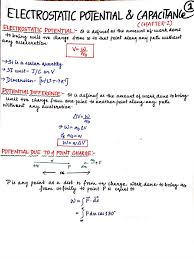 ELECTROSTATIC POTENTIAL & CAPACITANCE
(CHAPTER-2)
ELECTROSTATIC POTENTIAL:- It is defined as the amount of work done
to bring unit +ve charge from ∞ to that point along any path without
any acceleration
V = W/q₀
→ It is a scalar quantity
→ SI unit - J/C or V
→ Dimension -
POTENTIAL DIFFERENCE:- It is defined as the amount of work done to bring
unit +ve charge from one point to another point along any path
without any acceleration.
ΔV = W/q₀
W = q₀ΔV
W = qΔV
POTENTIAL DUE TO A POINT CHARGE:-
P is any point at a dist r from +q charge, work done to bring it
from infinity to point P is equal to
W = ∫ F⃗ . dx⃗
= ∫ F dx cos 180°